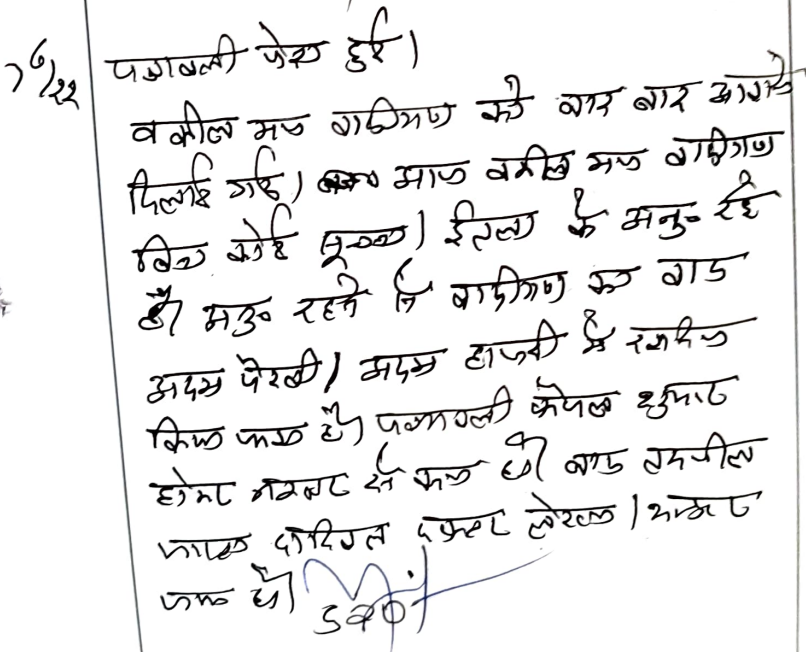 7/6/22
पत्रावली पेश हुई।
वकील मय वादीगण को बार बार आवाजे
दिलाई गई। आज वकील मय वादीगण
बिना कोई सूचना। ईतला के अनु॰ रहे
है। अनु॰ रहने से वादीगण का वाद
अदम पैरवी। अदम हाजरी में खारीज
किया जाता है। पत्रावली फैसल शुमार
होकर नम्बर से कम हो। बाद तकमील
जाब्ता दाखिल दफ्तर लेख्य।
जाता है।
SDO